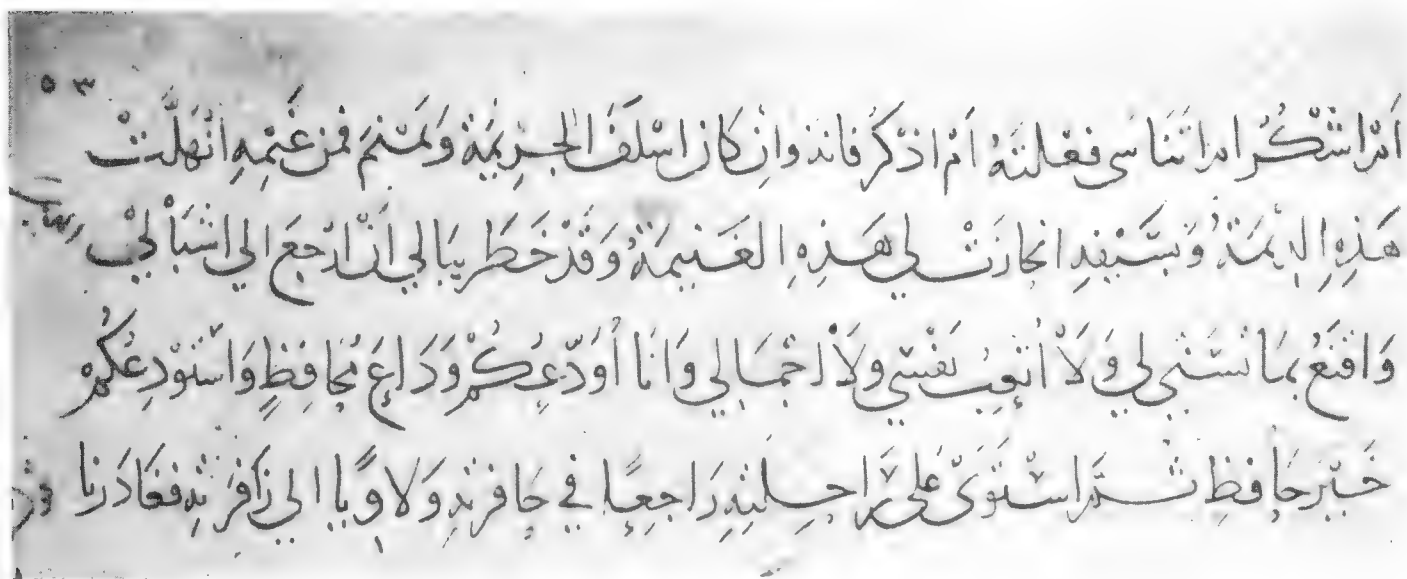 ٥٣
أم أشكر أم أتناسى فعلته أم أذكر فإنه وإن كان أسلف الجريمة ونمنم فمن غيمه انهلت
هذه الديمة وبسيفه انحازت لي هذه الغنيمة وقد خطر ببالي أن أرجع إلى أشبالي
وأقنع بما تسنى لي ولا أتعب نفسي ولا أجمالي وأنا أودعكم وداع محافظ وأستودعكم
خير حافظ ثم استوى على راحلته راجعا في حافرته ولاويا إلى زافرته فغادرنا